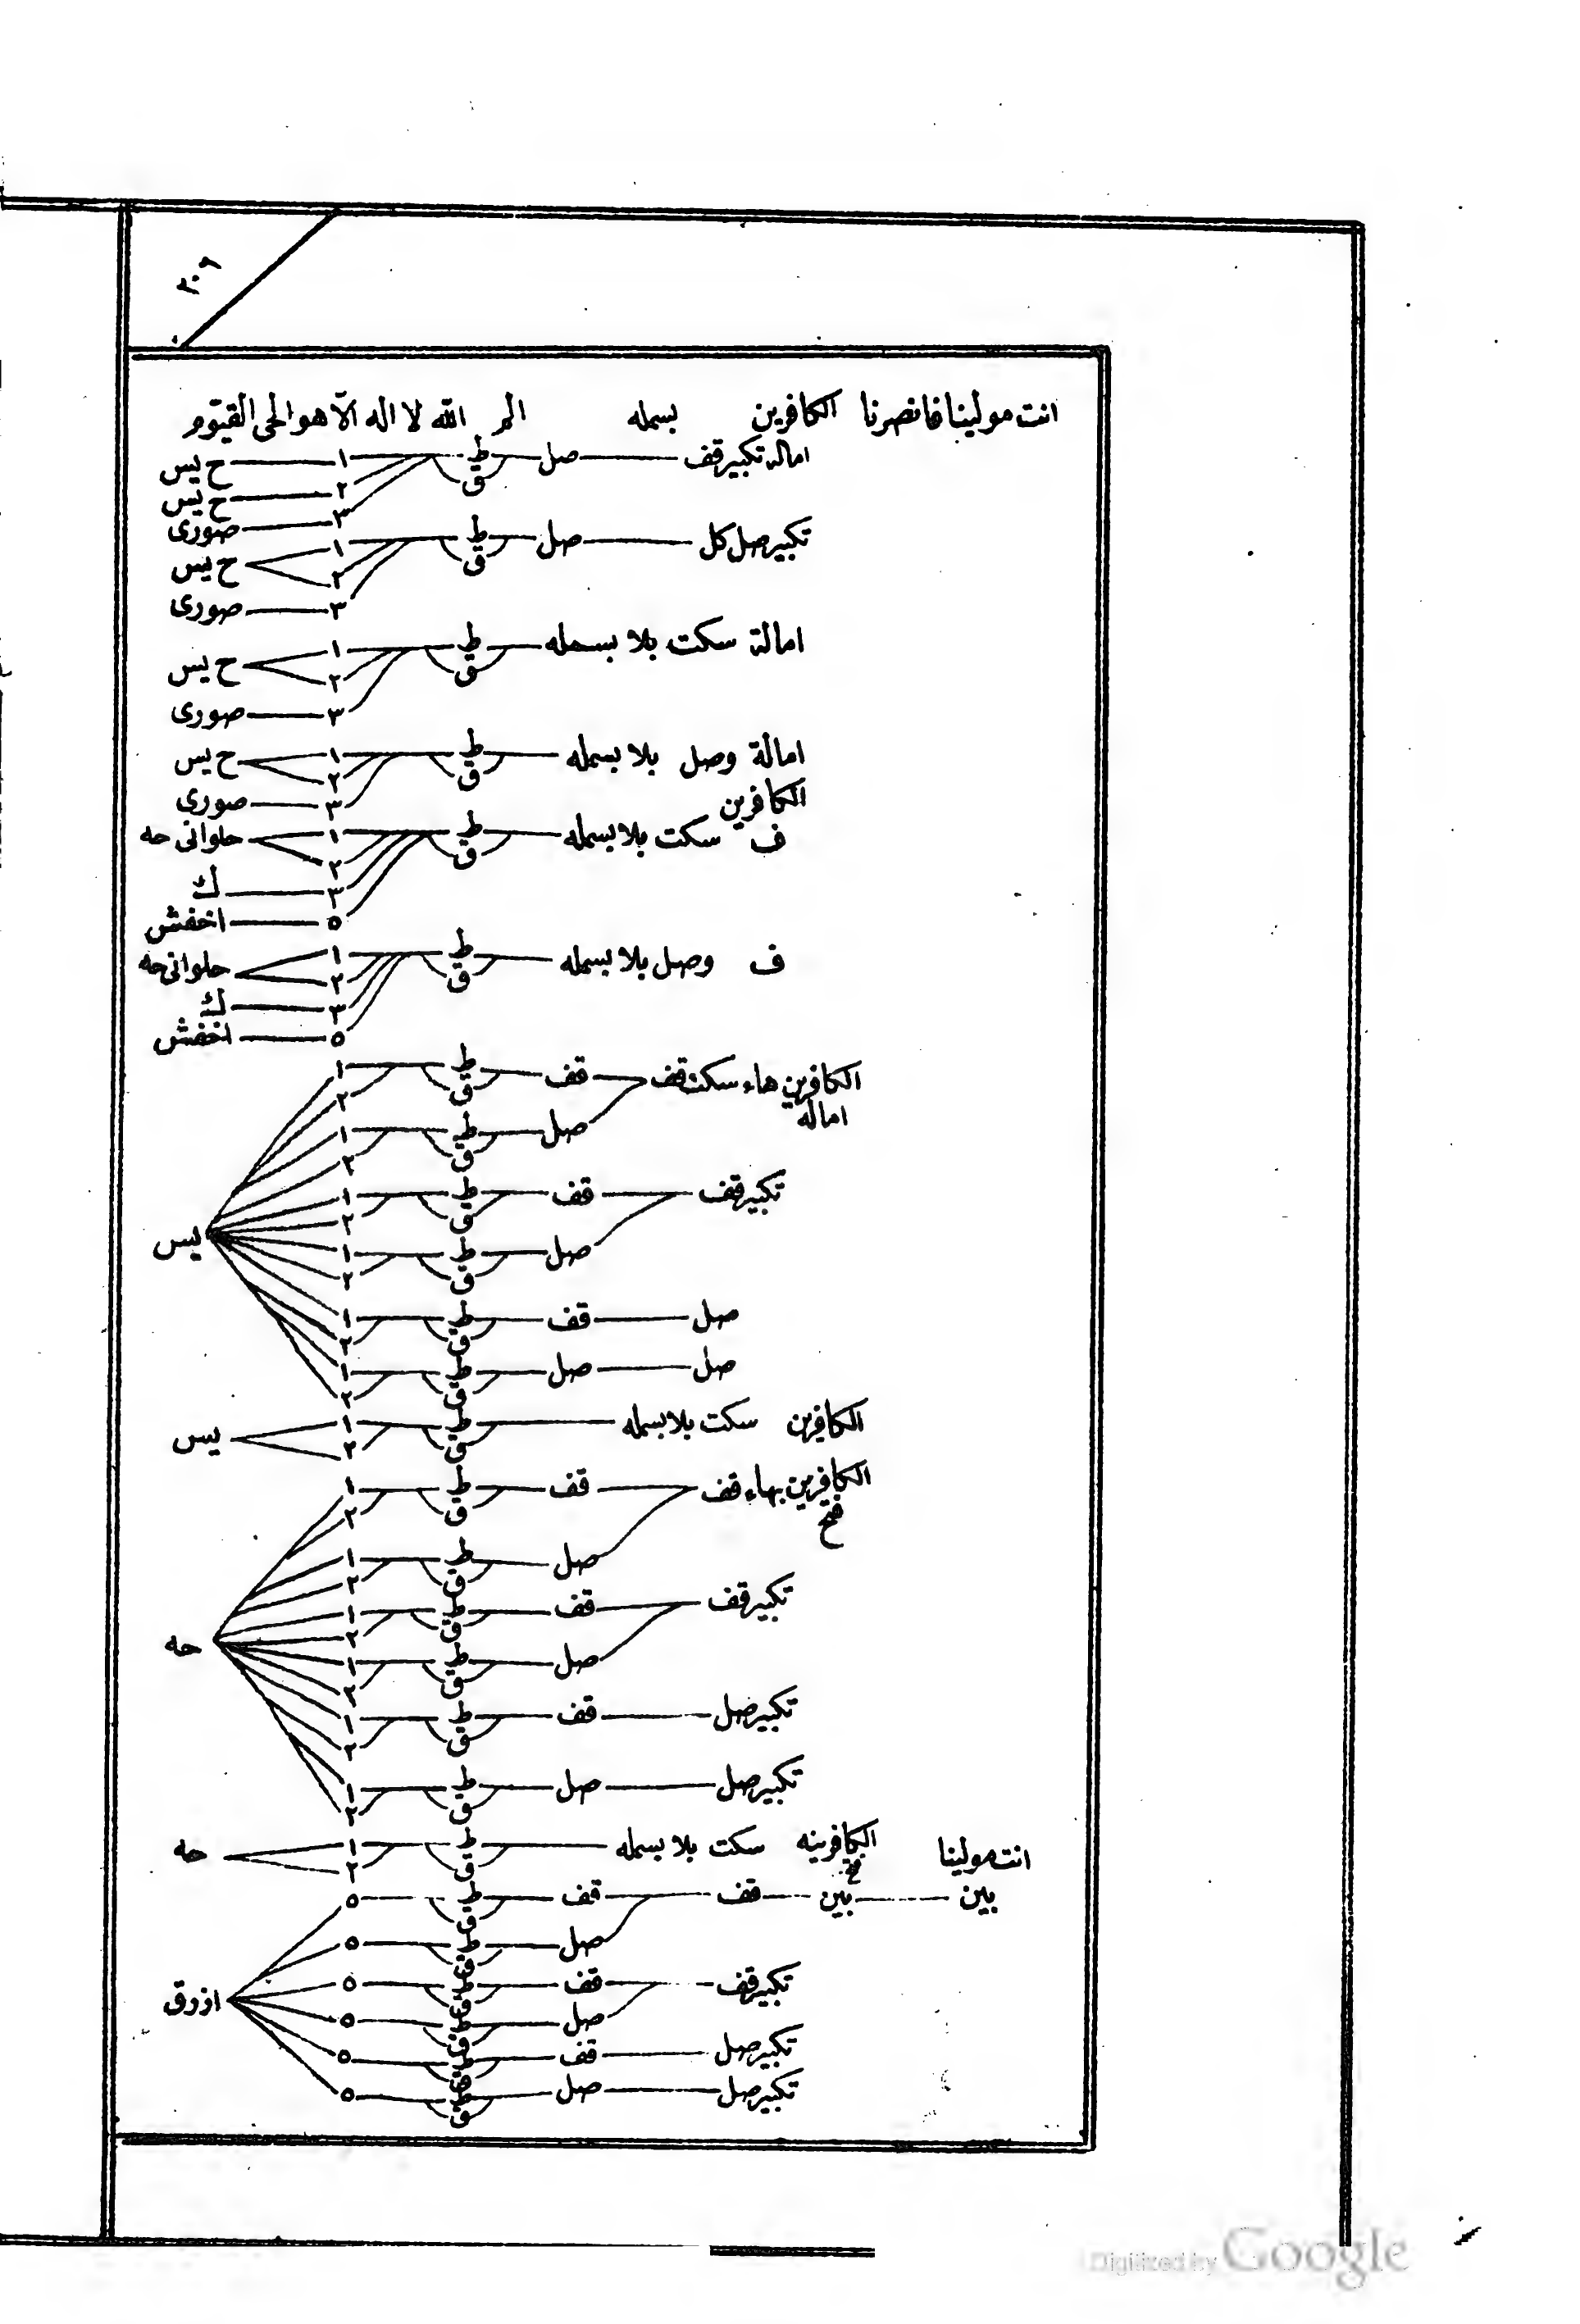 ٣٠٦
انت مولينا فانصرنا الكافرين بسمله الم الله لا اله الّا هو الحى القيّوم
اماله تكبير قف صل ط ق ١ ح يس
٢ ح يس
٣ صورى
تكبير صل كل صل ط ق ١ ٢ ح يس
٣ صورى
امالة سكت بلا بسمله ط ق ١ ٢ ح يس
٣ صورى
امالة وصل بلا بسمله ط ق ١ ٢ ح يس
٣ صورى
الكافرين
ف سكت بلا بسمله ط ق ١ ٢ حلوانى حه
٣ ك
٥ اخفش
ف وصل بلا بسمله ط ق ١ ٢ حلوانى حه
٣ ك
٥ اخفش
الكافرين هاء سكت قف قف ط ق ١ ٢
اماله صل ط ق ١ ٢
تكبير قف قف ط ق ١ ٢
يس
صل ط ق ١ ٢
صل قف ط ق ١ ٢
صل صل ط ق ١ ٢
الكافرين سكت بلا بسمله ط ق ١ ٢ يس
الكافرين بهاء قف قف ط ق ١ ٢
فتح
صل ط ق ١ ٢
تكبير قف قف ط ق ١ ٢
حه
صل ط ق ١ ٢
تكبير صل قف ط ق ١ ٢
تكبير صل صل ط ق ١ ٢
انت مولينا الكافرينه سكت بلا بسمله ط ق ١ ٢ حه
بين بين قف قف ط ق ٥
صل ط ق ٥
تكبير قف قف ط ق ٥
ازرق
صل ط ق ٥
تكبير صل قف ط ق ٥
تكبير صل صل ط ق ٥
Digitized by Google